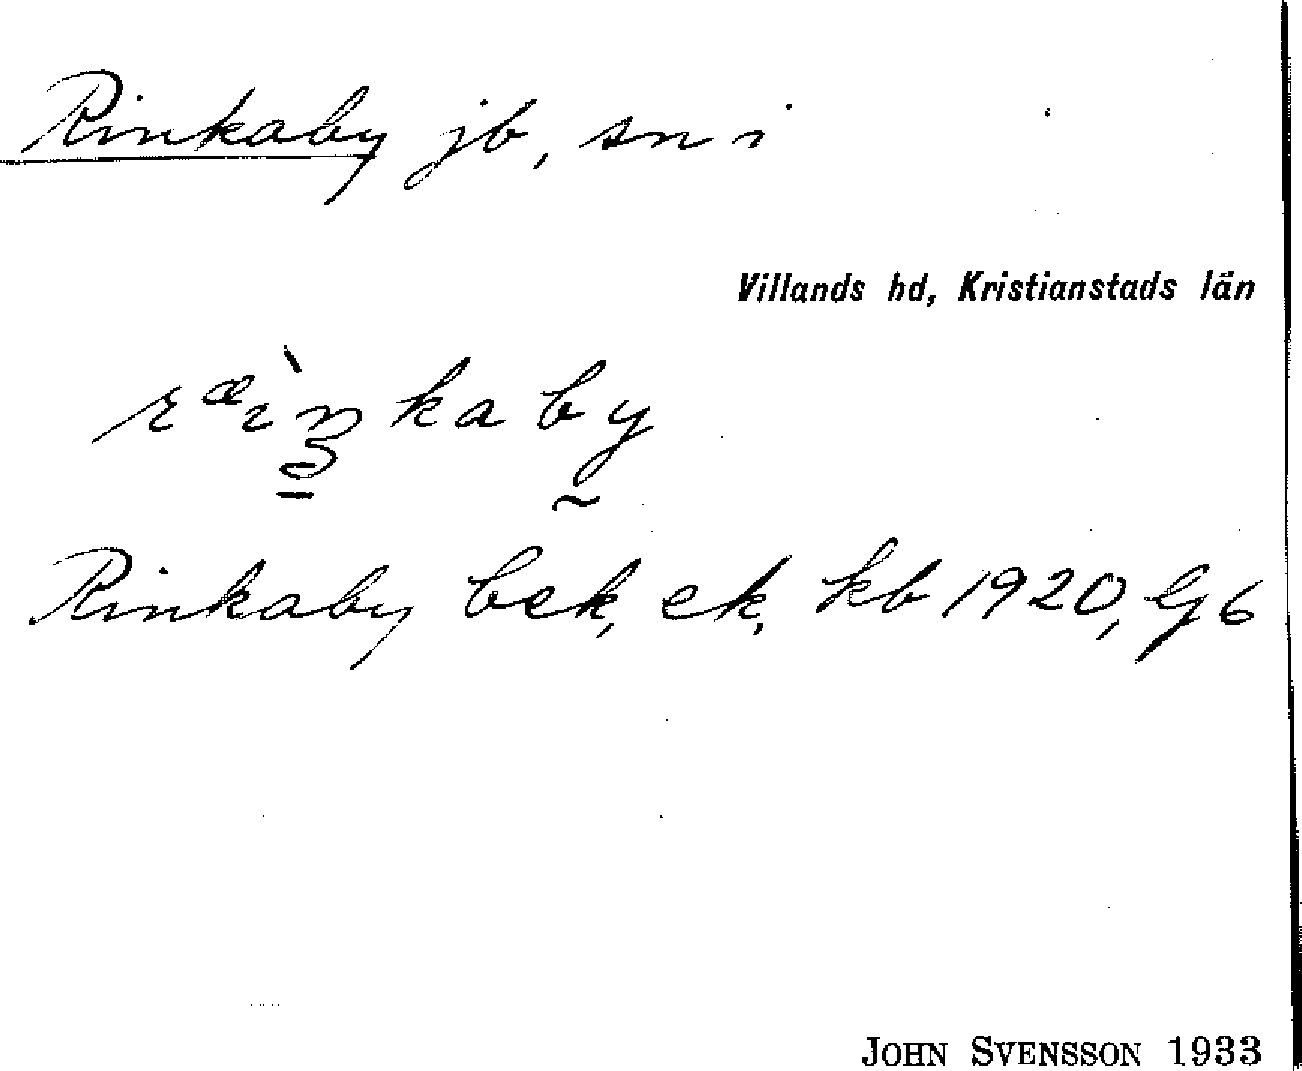 Rinkaby jb, sn i
Villands hd, Kristianstads län
Rinkaby bek, ek, kb 1920, G6
JOHN SVENSSON 1933